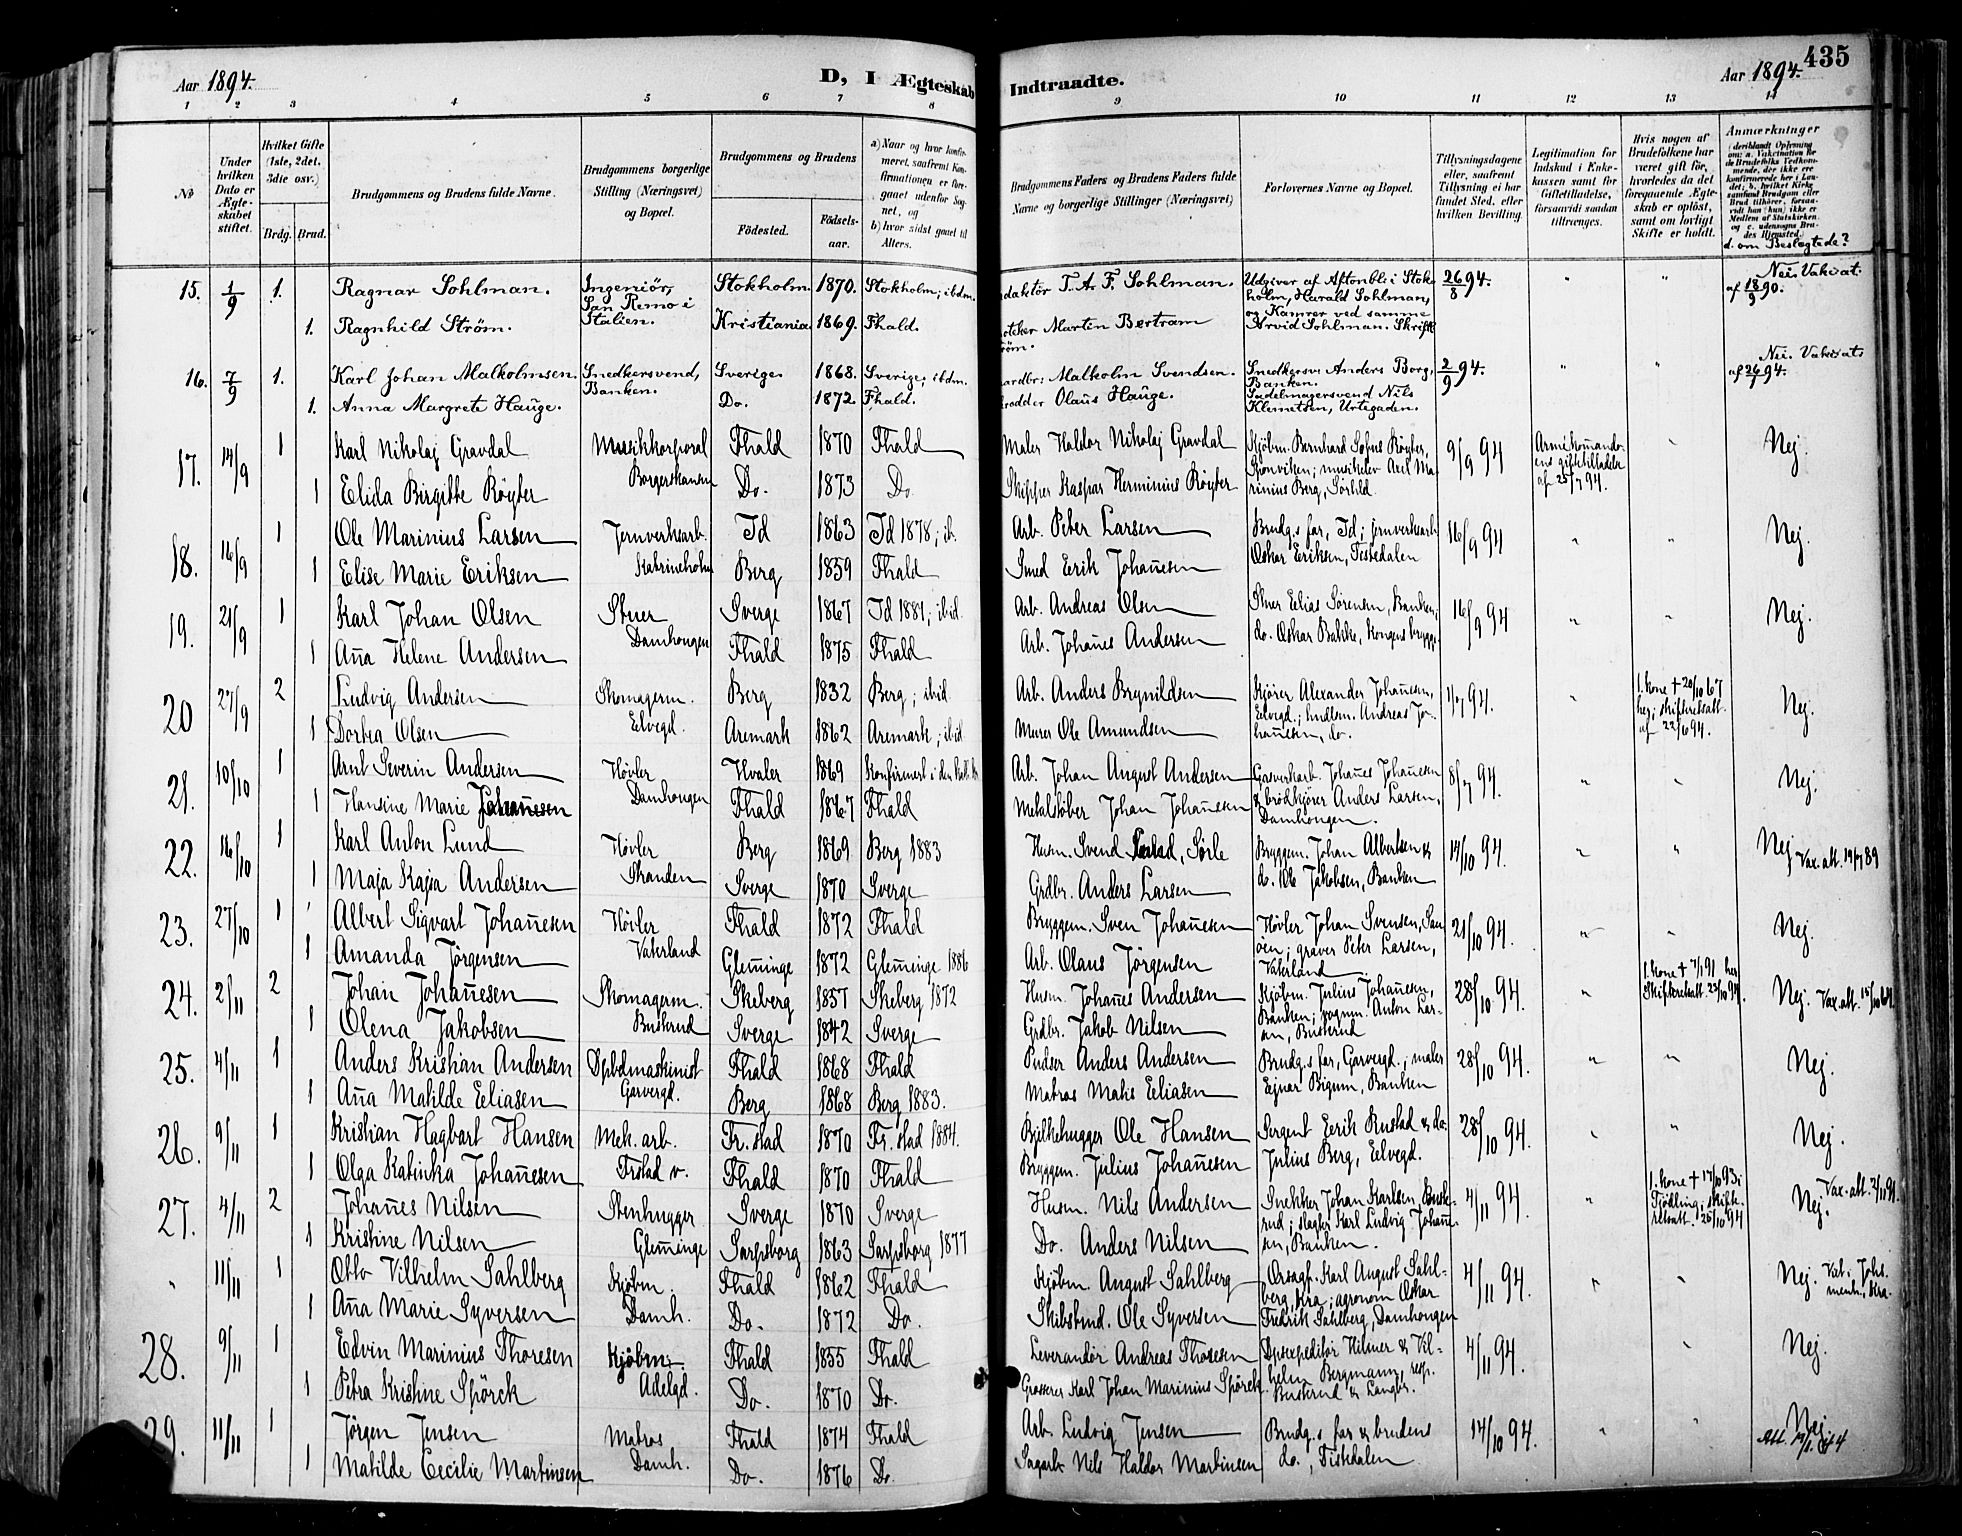 Aar 1894.
D, I Ægteskab Indtraadte.
435
Aar 1894.
1 2 3 4 5 6 7 8 9 10 11 12 13 14
No
Under hvilken Dato er Ægteskabet stiftet.
Hvilket Gifte (1ste, 2det, 3die osv.)
Brdg. Brud.
Brudgommens og Brudens fulde Navne.
Brudgommens borgerlige Stilling (Næringsvei) og Bopæl.
Brudgommens og Brudens
Födested. Födsels-aar.
a) Naar og hvor konfirmeret, saafremt Konfirmationen er foregaaet udenfor Sognet, og
b) hvor sidst gaaet til Alters.
Brudgommens Faders og Brudens Faders fulde Navne og borgerlige Stillinger (Næringsvei)
Forlovernes Navne og Bopæl.
Tillysningsdagene eller, saafremt Tillysning ei har fundet Sted, efter hvilken Bevilling.
Legitimation for Indskud i Enkekassen samt for Giftetilladelse, forsaavidt saadan tiltrænges.
Hvis nogen af Brudefolkene har været gift för, hvorledes da det foregaaende Ægteskab er oplöst, samt om lovligt Skifte er holdt.
Anmærkninger
d. om Beslægtede?
15. 1/9 1. Ragnar Sohlman. Ingeniör, San Remo i Italien. Stokholm 1870. Stokholm; ibdm. daktör T. A. F. Sohlman. Udgiver af Aftonbl. i Stokholm, Harald Sohlman, 26/8 94. " " Nei. Vak.at. af 18/9 90.
1. Ragnhild Ström. Kristiania 1869. Fhald. oteker Martin Bertram röm. og Kamrer ved samme Arvid Sohlman. Skrift.
16. 7/9 1. Karl Johan Malkolmsen. Snedkersvend, Banken. Sverige 1868. Sverige; ibdm. aardbr: Malkolm Svendsen. Snedkersv: Anders Borg, Banken. 2/9 94. " " Nei. Vak.at. af 26/7 94.
1. Anna Margrete Hauge. Do. 1872. Fhald. Olaus Hauge. Sadelmagersvend Nils Klemetsen, Urtegaden.
17. 14/9 1 Karl Nikolaj Gravdal Musikkorporal Fhald 1870 Fhald Maler Haldor Nikolaj Gravdal Kjöbm. Bernhard Sofus Röyter, 9/9 94 Armékomandoens giftetilladelse af 25/7 94. " Nej.
1 Elida Birgitte Röyter Borgerskansen Do. 1873 Do. Skipper Kaspar Herminius Röyter musikelev Axel Marinius Berg, Sörhld.
18. 16/9 1 Ole Marinius Larsen Jernverksarb. Id 1863 Id 1878; ib. Arb. Peter Larsen Brudg.s far, Id; jernverksarb. 16/9 94 " " Nej.
1 Elise Marie Eriksen Katrineholm Berg 1859 Fhald Smed Erik Johañesen Oskar Eriksen, Tistedalen
19. 21/9 1 Karl Johan Olsen Stuer Sverge 1867 Id 1881; ibid. Arb. Andreas Olsen Stuer Elias Sörensen, Banken; 16/9 94 " " Nej.
1 Aña Helene Andersen Damhougen Fhald 1875 Fhald Arb. Johañes Andersen do. Oskar Bakke, Kongens brygge
20 27/9 2 Ludvig Andersen Skomagerm. Berg 1832 Berg; ibid Arb. Anders Brynildsen Kjörer Alexander Johañesen, 1/7 94. " 1. kone + 20/10 67 her; skifteretsatt. af 22/6 94. Nej.
1 Dortea Olsen Elvegd. Aremark 1862 Aremark; ibid Murer Ole Amundsen Elvegd.; hndlsm. Andreas Johañesen, do.
21. 10/10 1 Arnt Severin Andersen Hövler Hvaler 1869 Konfirmert i den kat. k. Arb. Johan August Andersen Gasverksarb. Johañes Johañesen 8/7 94. " " Nej.
1 Hansine Marie Johañesen Damhougen Fhald 1867 Fhald Metalstöber Johan Johañesen & brödkjörer Anders Larsen, Damhougen.
22. 16/10 1 Karl Anton Lund Hövler Berg 1869 Berg 1883 Husm. Svend Bryggem. Johan Albertsen & 14/10 94. " " Nej Vax. att. 19/7 89
1 Maja Kajsa Andersen Stranden Sverge 1870 Sverge Grdbr. Anders Larsen do. Ole Jakobsen, Banken
23. 27/10 1 Albert Sigvart Johañesen Hövler Fhald 1872 Fhald Bryggem. Sven Johañesen Hövler Johan Svensen, Sauöen; 21/10 94. " " Nej.
1 Amanda Jörgensen Vaterland Glem̃inge 1872 Glem̃inge 1886 Arb. Olaus Jörgensen graver Peter Larsen, Vaterland
24. 2/11 2 Johan Johañesen Skomagerm. Skeberg 1857 Skeberg 1872 Husm. Johañes Andersen Kjöbm. Julius Johañesen, 28/10 94. " 1. kone + 7/1 91 her Skifteretsatt. 23/10 94. Nej. Vax. att. 15/10 64.
1 Olena Jakobsen Buskrud Sverge 1842 Sverge Grdbr. Jakob Nilsen Banken; vognm. Anton Larsen, Buskrud
25. 4/11 1 Anders Kristian Andersen Dpbdmaskinist Fhald 1868 Fhald Pudser Anders Andersen Brudg.s far, Garvergd.; maler 28/10 94. " " Nej.
1 Aña Matilde Eliasen Garvergd. Berg 1868 Berg 1883. Matros Matis Eliasen Ejnar Bigum, Banken
26. 9/11 1 Kristian Hagbart Hansen Mek. arb. Fr.stad 1870 Fr.stad 1884. Bjelkehugger Ole Hansen Sergent Erik Rustad & do. 28/10 94. " " Nej.
1 Olga Katinka Johañesen Frstad v. Fhald 1870 Fhald Bryggem. Julius Johañesen Julius Berg, Elvegd.
27. 4/11 2 Johañes Nilsen Stenhugger Sverge 1870 Sverge Husm. Nils Andersen Snekker Johan Karlsen, Buskrud; 4/11 94. " 1. kone + 17/10 93 i Tjödling; skifteretsatt. 25/10 94 Nej. Vax. att. 2/11 91.
1 Kristine Nilsen Glem̃inge Sarpsborg 1863 Sarpsborg 1877 Do. Anders Nilsen slagter Karl Ludvig Johañesen, Banken.
" 11/11 1 Otto Vilhelm Sahlberg Kjöbm. Fhald 1862 Fhald Kjöbm. August Sahlberg Karl August Sahlberg, Kra; agronom Oskar 4/11 94. " " Nej. Vat. i Johs. menh., Kra.
1 Aña Marie Syversen Damh. Do. 1872 Do. Ole Syversen Fredrik Sahlberg, Damhougen
28. 9/11 1 Edvin Marinius Thoresen Kjöbm. Fhald 1855 Fhald Leverandör Andreas Thoresen Dpsexpeditör Hilmer & Vilhelm 4/11 94. " Nej.
1 Petra Kristine Spörck Adelgd. Do. 1870 Do. Grosserer Karl Johan Marinius Spörck Bergmann, resp. Buskrud & Langbr.
29. 11/11 1 Jörgen Jensen Matros Fhald 1874 Fhald Arb. Ludvig Jensen Brudg.s far & brudens 14/10 94. " " Nej
1 Matilde Cecilie Martinsen Damh. Do. 1876 Do. Sagarb. Nils Haldor Martinsen do., Tistedalen